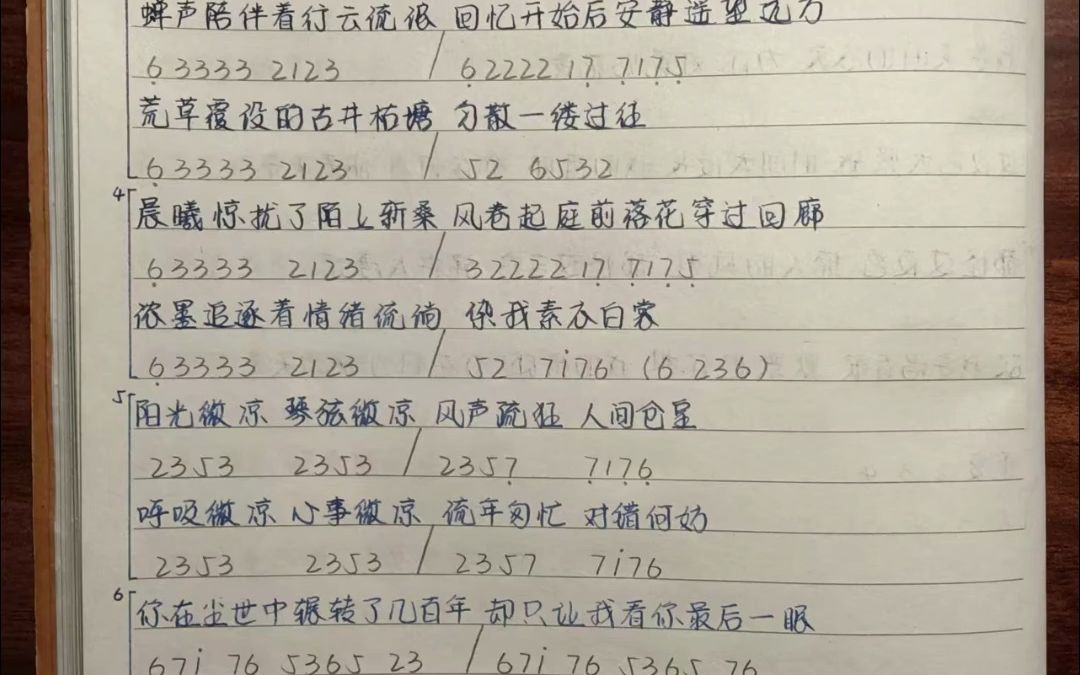 蝉声陪伴着行云流浪 回忆开始后安静遥望远方
6̣3333 2123 / 6̣2222 17̣ 7̣17̣5̣
荒草覆没的古井枯塘 匀散一缕过往
6̣3333 2123 / 52 6532
4 晨曦惊扰了陌上新桑 风卷起庭前落花穿过回廊
6̣3333 2123 / 32222 17̣ 7̣17̣5̣
浓墨追逐着情绪流淌 染我素衣白裳
6̣3333 2123 / 5217i76 (6 236)
5 阳光微凉 琴弦微凉 风声疏狂 人间仓皇
2353 2353 / 2357̣ 7̣17̣6̣
呼吸微凉 心事微凉 流年匆忙 对错何妨
2353 2353 / 2357 7i76
6 你在尘世中辗转了几百年 却只让我看你最后一眼
67i 76 5365 23 / 67i 76 5365 76